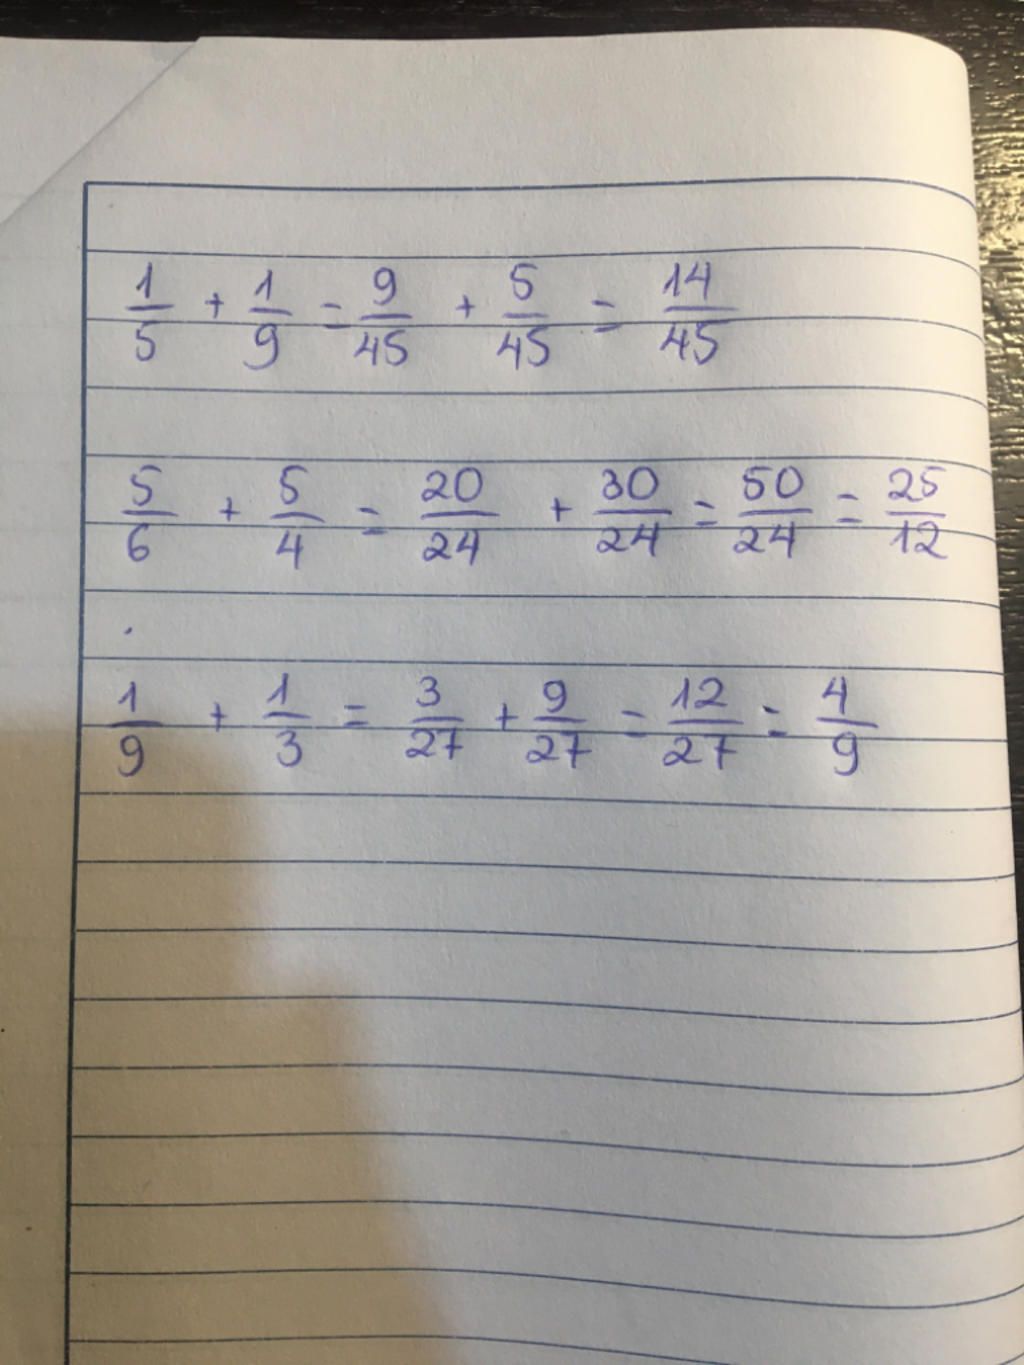 1/5 + 1/9 = 9/45 + 5/45 = 14/45
5/6 + 5/4 = 20/24 + 30/24 = 50/24 = 25/12
1/9 + 1/3 = 3/27 + 9/27 = 12/27 = 4/9